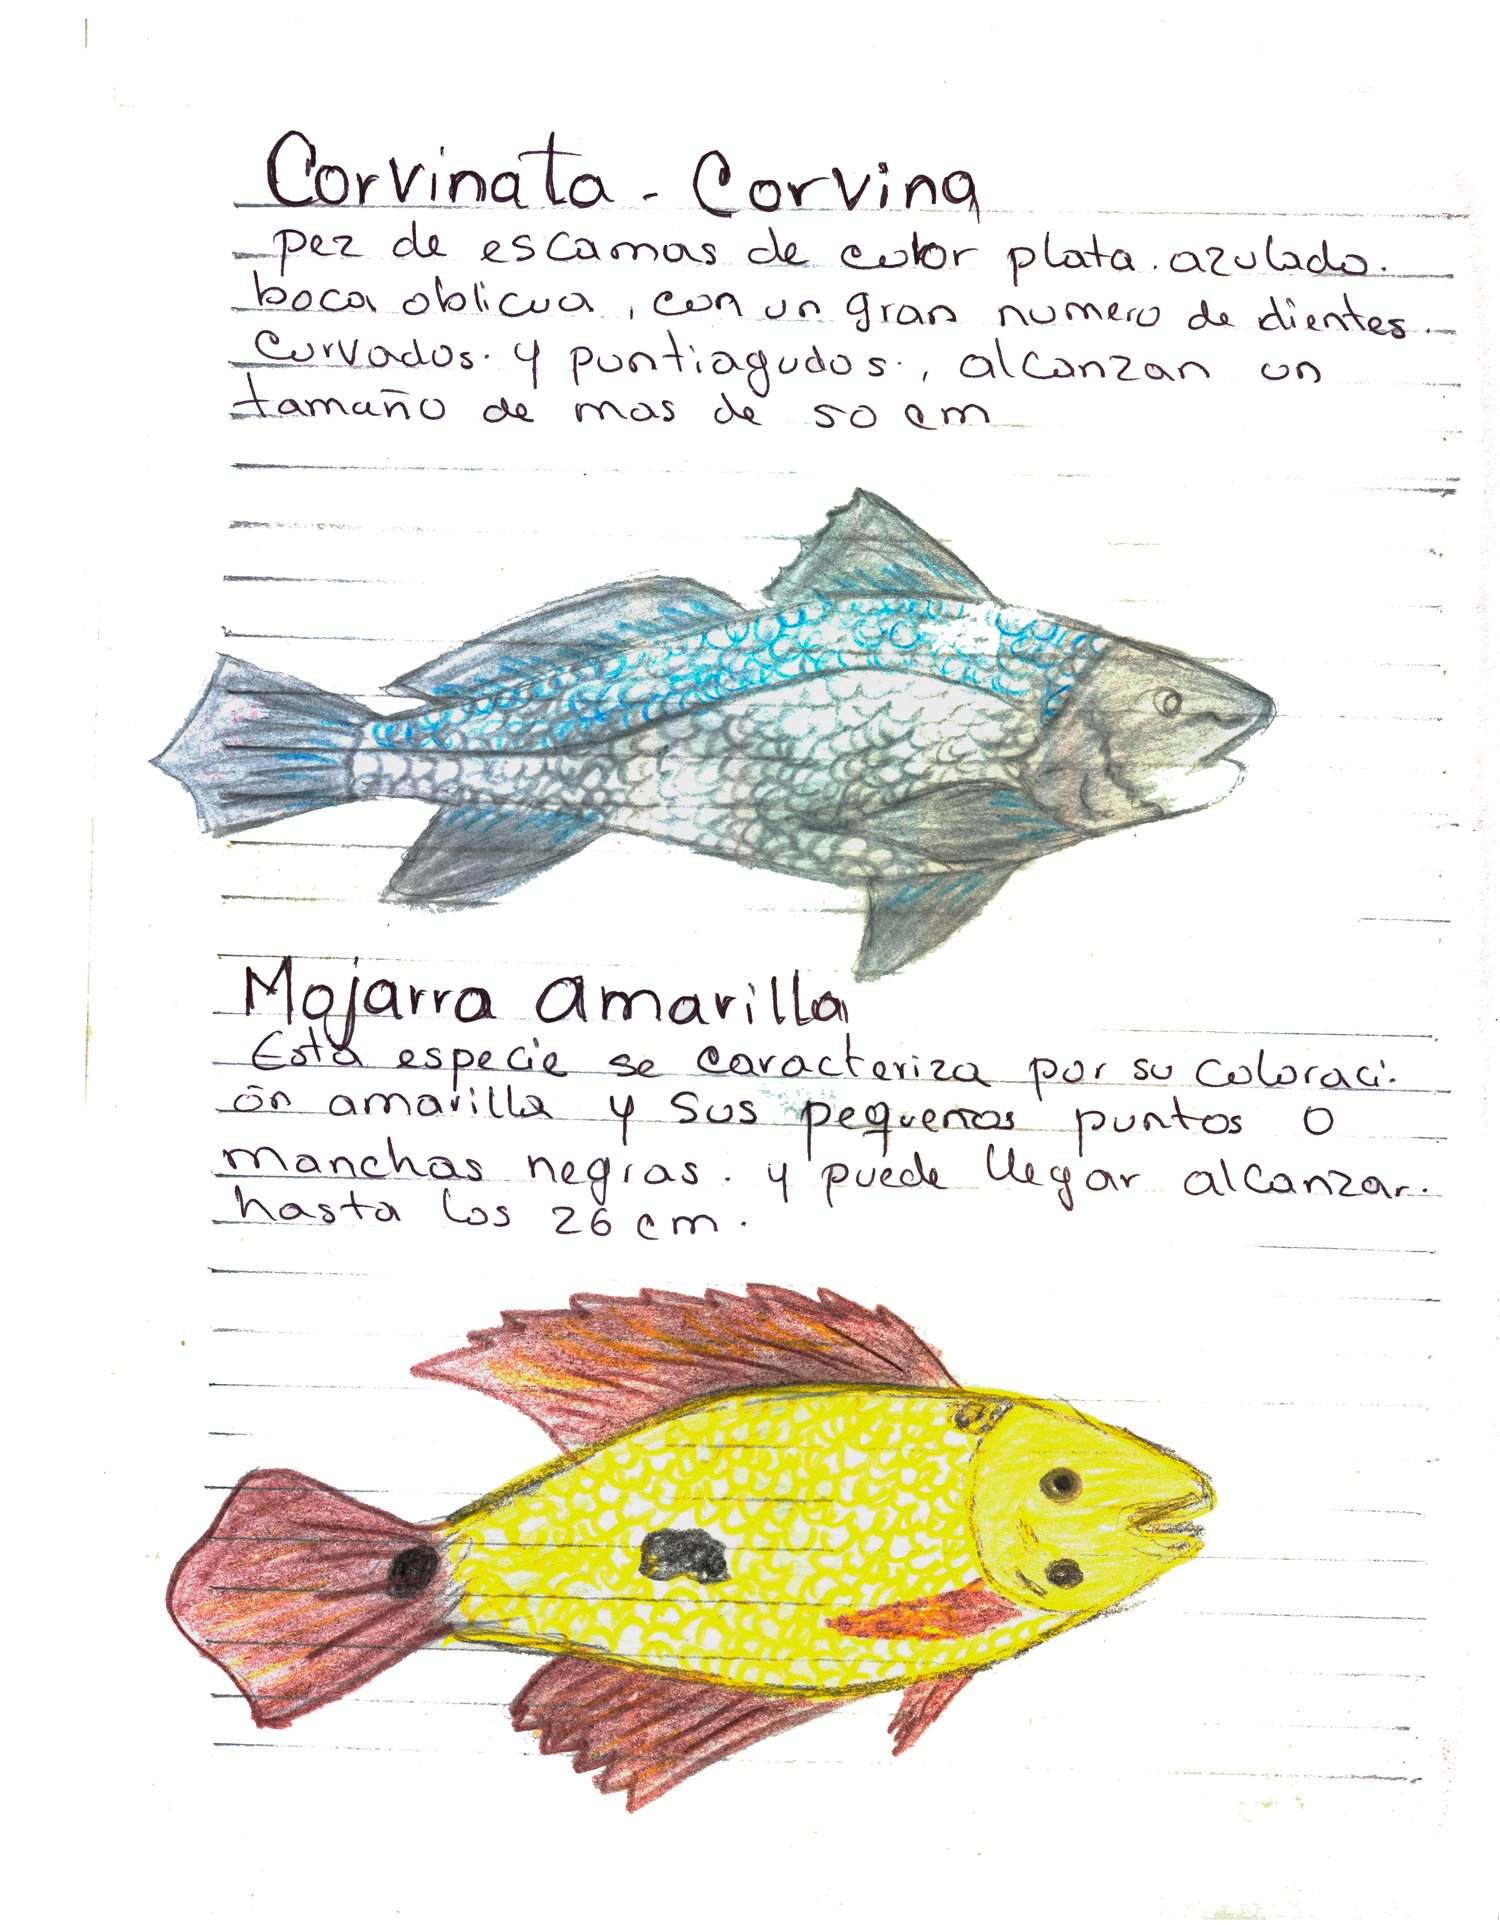 Corvinata - Corvina
pez de escamas de color plata. azulado.
boca oblicua, con un gran numero de dientes.
Curvados. y puntiagudos., alcanzan un
tamaño de mas de 50 cm
Mojarra amarilla
Esta especie se caracteriza por su coloraci.
ón amarilla y sus pequeños puntos o
manchas negras. y puede llegar alcanzar.
hasta los 26 cm.